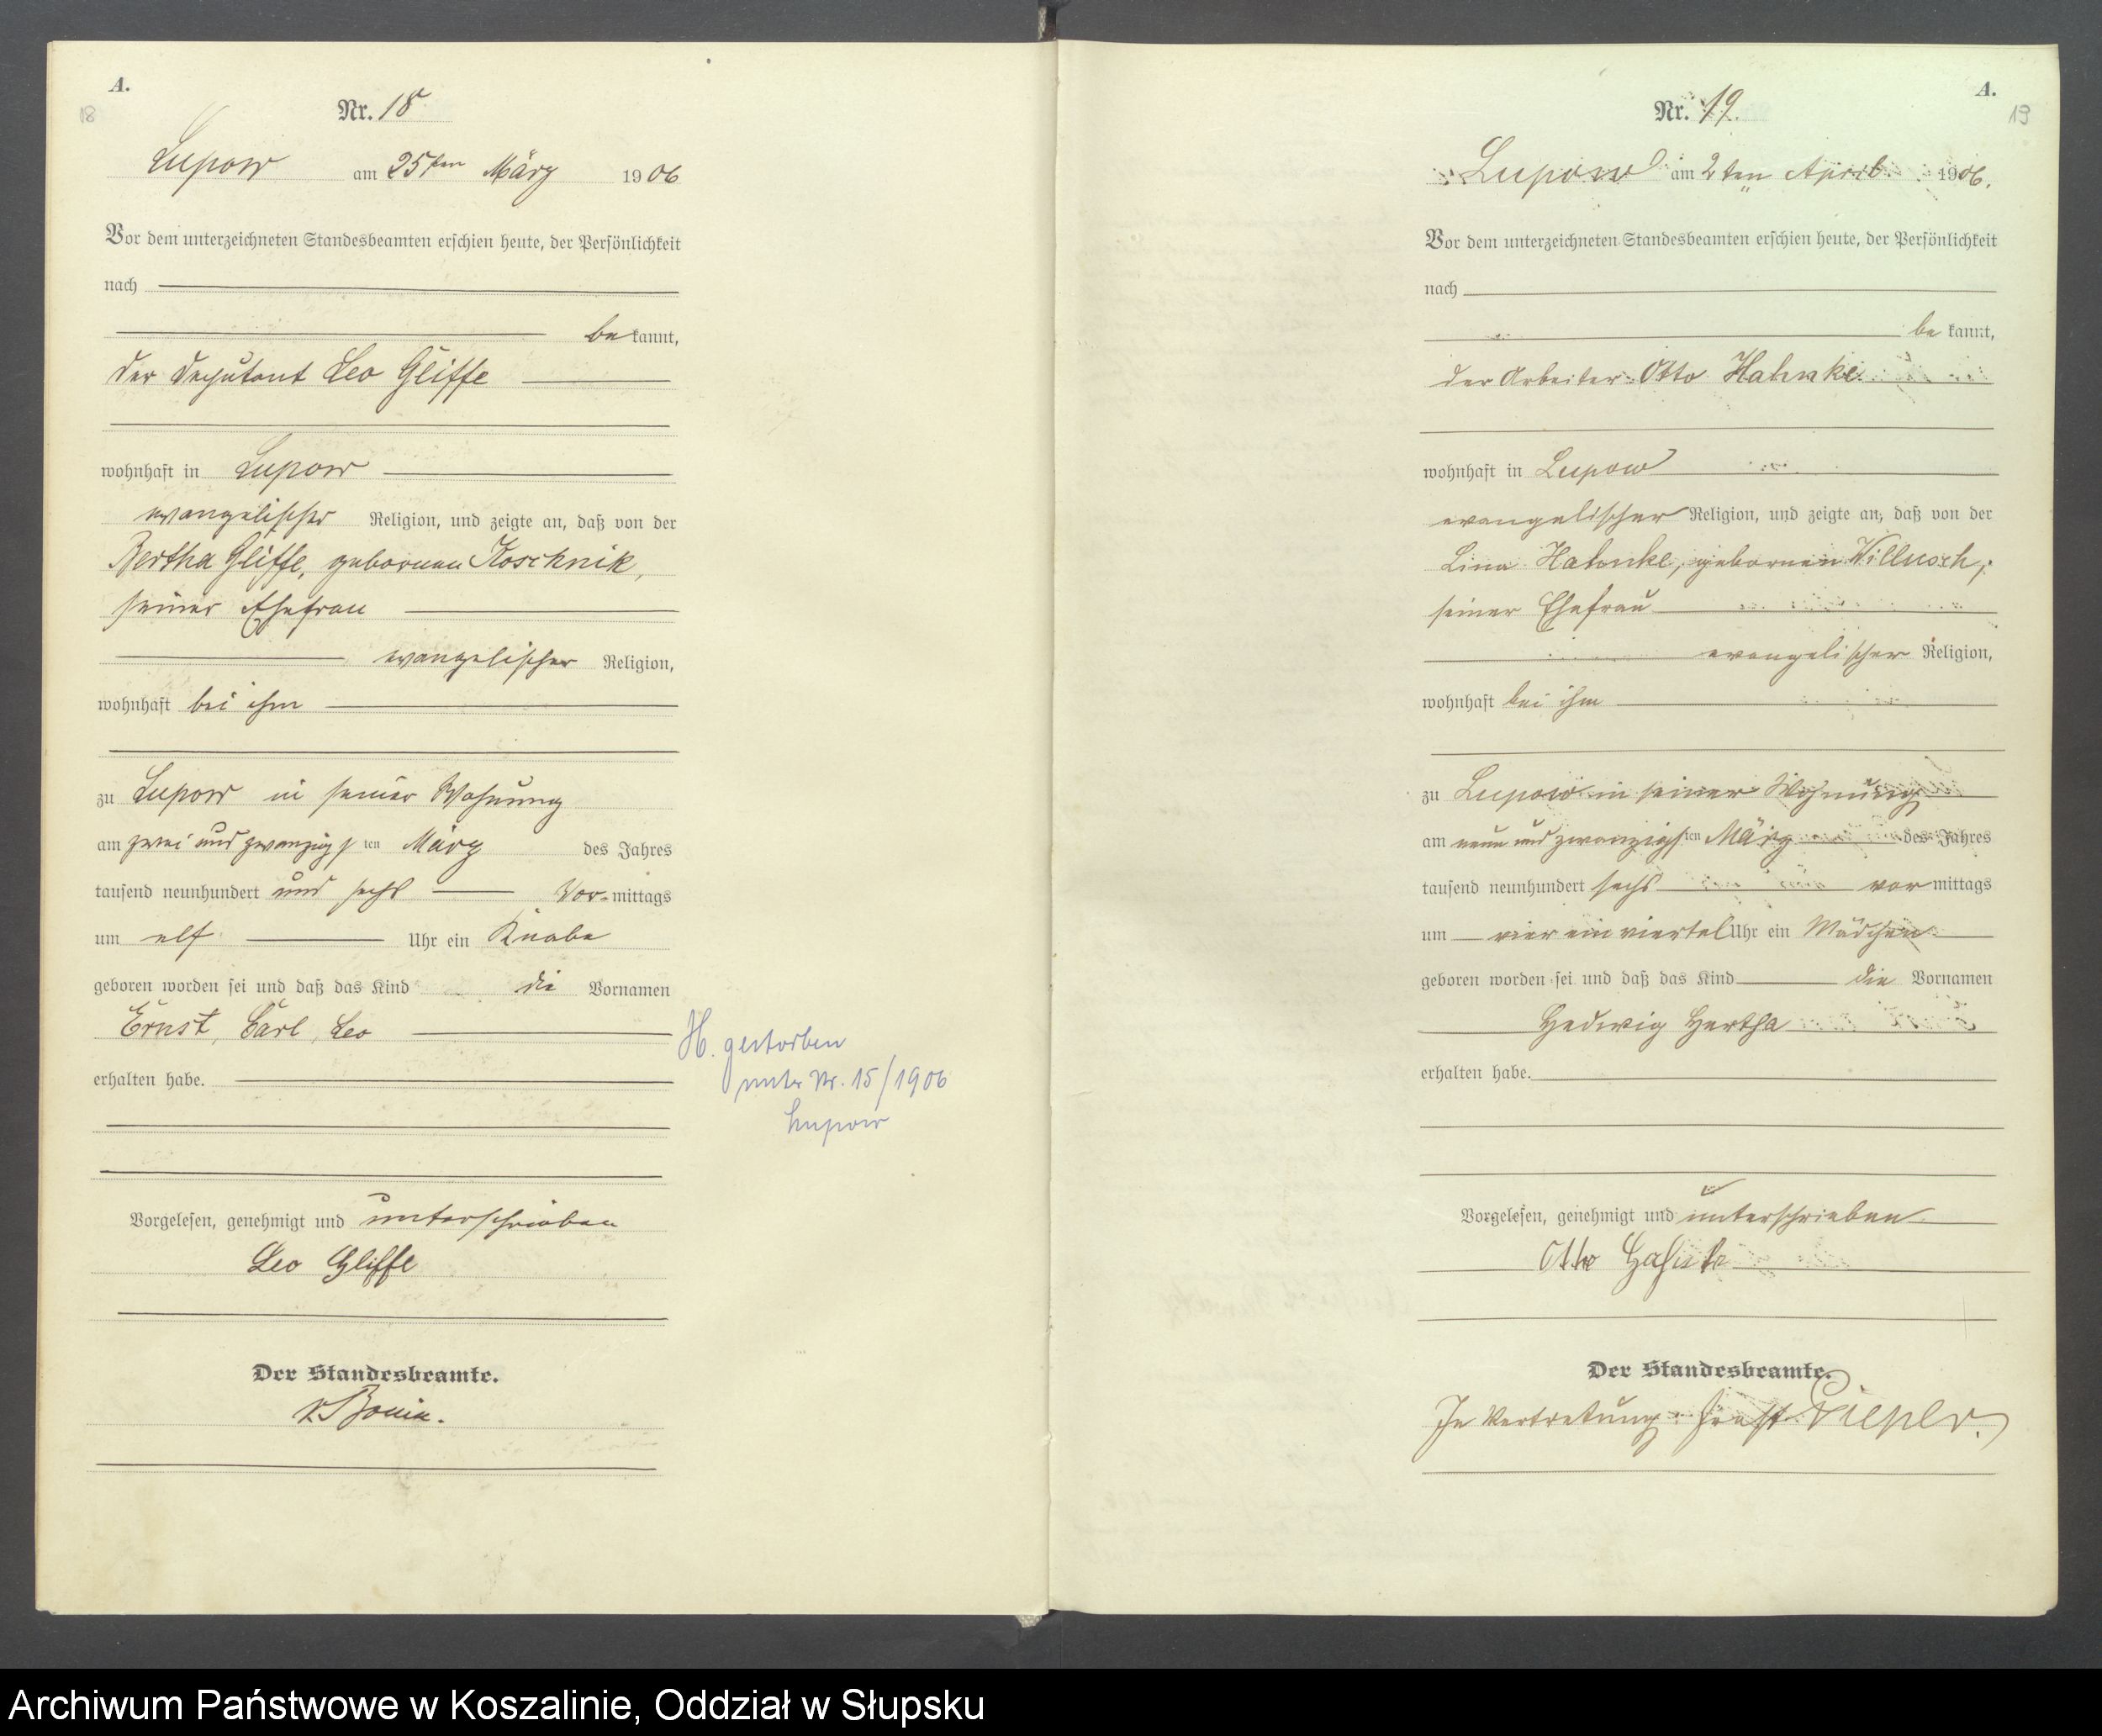 A.
18
Nr. 18
Lupow am 25ten März 1906
Vor dem unterzeichneten Standesbeamten erschien heute, der Persönlichkeit
nach
be kannt,
der Deputant Leo Gliffe
wohnhaft in Lupow
evangelischer Religion, und zeigte an, daß von der
Bertha Gliffe, geborenen Koschnik,
seiner Ehefrau
evangelischer Religion,
wohnhaft bei ihm
zu Lupow in seiner Wohnung
am zwei und zwanzigsten März des Jahres
tausend neunhundert und sechs Vor-mittags
um elf Uhr ein Knabe
geboren worden sei und daß das Kind die Vornamen
Ernst, Carl, Leo
erhalten habe.
H. gestorben
unter Nr. 15/1906
Lupow
Vorgelesen, genehmigt und unterschrieben
Leo Gliffe
Der Standesbeamte.
v. Bonin.
A.
19
Nr. 19.
Lupow am 2ten April 1906.
Vor dem unterzeichneten Standesbeamten erschien heute, der Persönlichkeit
nach
be kannt,
der Arbeiter Otto Hahnke
wohnhaft in Lupow
evangelischer Religion, und zeigte an, daß von der
Lina Hahnke, gebornen Villnoch,
seiner Ehefrau
evangelischer Religion,
wohnhaft bei ihm
zu Lupow in seiner Wohnung
am neun und zwanzigsten März des Jahres
tausend neunhundert sechs vor mittags
um vier ein viertel Uhr ein Mädchen
geboren worden sei und daß das Kind die Vornamen
Hedwig Hertha
erhalten habe.
Vorgelesen, genehmigt und unterschrieben
Otto Hahnke
Der Standesbeamte.
In Vertretung: Ernst Pieper.
Archiwum Państwowe w Koszalinie, Oddział w Słupsku